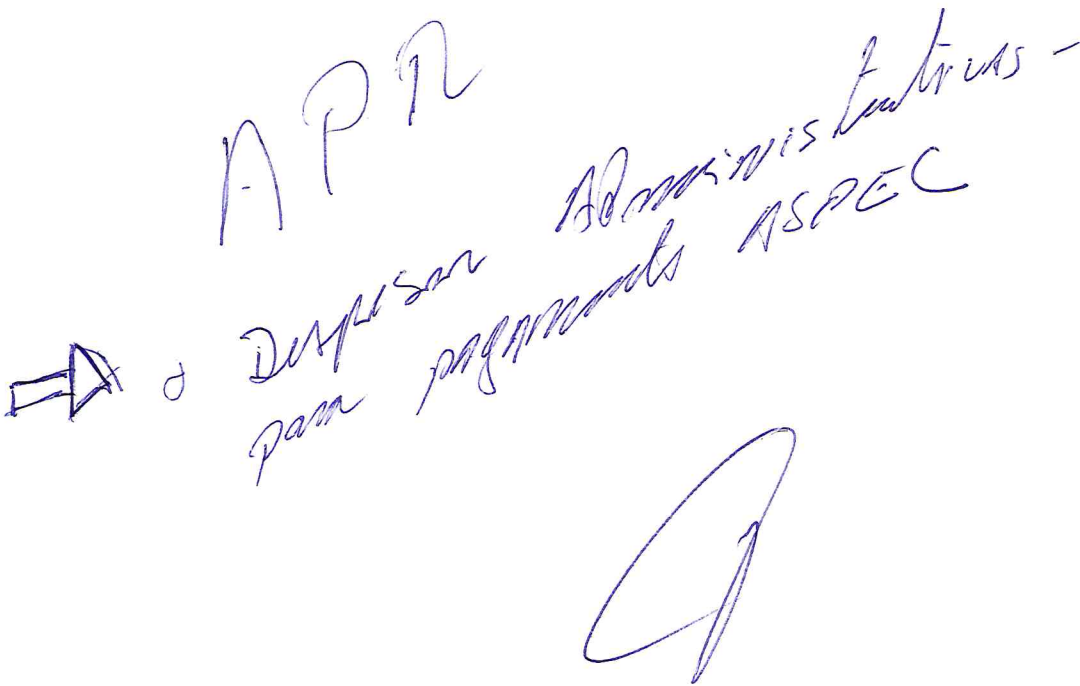 APR
Despesas Administrativas -
para pagamento ASPEC